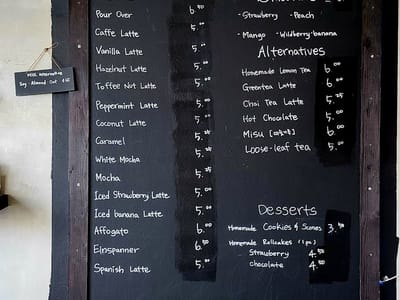 Pour Over 6.50
Caffe Latte 5.
Vanilla Latte 5.
Hazelnut Latte 5.
Toffee Nut Latte 5.
Peppermint Latte 5.
Coconut Latte 5.
Caramel 5.
White Mocha 5.
Mocha 5.
Iced Strawberry Latte 5.
Iced banana Latte 5.
Affogato 6.00
Einspanner 6.50
Spanish Latte 5.
- Strawberry - Peach
- Mango - Wildberry-banana
Alternatives
Homemade Lemon Tea 6.00
Greentea Latte 6.
Chai Tea Latte 5.
Hot Chocolate 5.
Misu [미숫] 6.00
Loose-leaf tea 5.00
Desserts
Homemade Cookies & Scones 3.50
Homemade Rollcakes (1pc)
- Strawberry 4.
- chocolate 4.
Milk Alternative
Soy Almond Oat